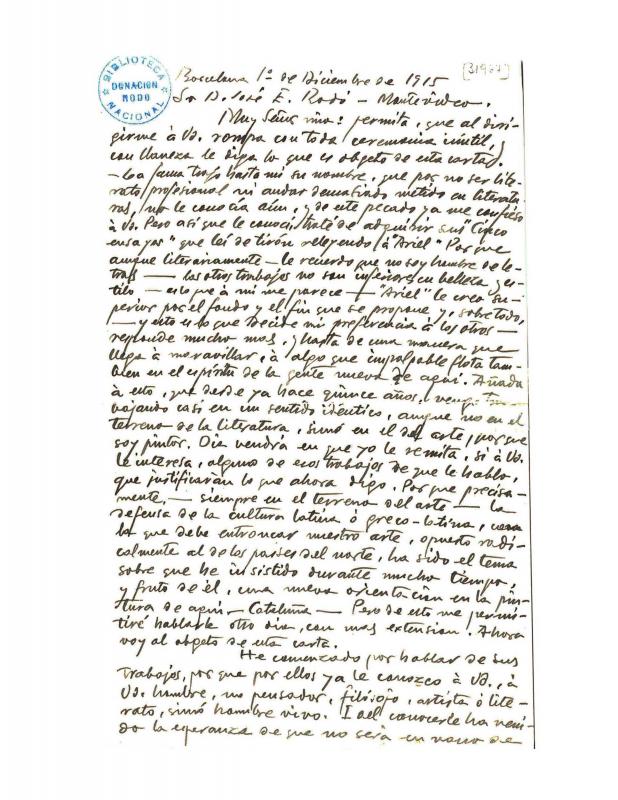 BIBLIOTECA
DONACION
RODO
NACIONAL
[31967]
Barcelona 1º de Diciembre de 1915
Sr D. José E. Rodó — Montevideo.
Muy Señor mio: permita, que al diri-
girme à Vd. rompa con toda ceremonia inútil, y
con llaneza le diga lo que es objeto de esta carta.
— La fama trajo hasta mi su nombre, que por no ser lite-
rato profesional ni andar demasiado metido en literatu-
ras, no le conocía aún, y de este pecado ya me confieso
à Vd. Pero así que le conocí, traté de adquirir sus "Cinco
ensayos" que leí de tirón releyendo à "Ariel" Por que
aunque literariamente — le recuerdo que no soy hombre de le-
tras — los otros trabajos no son inferiores en belleza y es-
tilo — es lo que à mi me parece — "Ariel" le creo su-
perior por el fondo y el fin que se propone y, sobre todo,
— y esto es lo que decide mi preferencia à los otros —
responde mucho mas, y hasta de una manera que
llega à maravillar, à algo que impalpable flota tam-
bien en el espíritu de la gente nueva de aquí. Añada
à esto, que desde ya hace quince años, vengo tra-
bajando casi en un sentido idéntico, aunque no en el
terreno de la literatura, sinó en el del arte, por que
soy pintor. Dia vendrá en que yo le remita, si à Vd.
le interesa, alguno de esos trabajos de que le hablo,
que justificarán lo que ahora digo. Por que precisa-
mente, — siempre en el terreno del arte — la
defensa de la cultura latina ó greco-latina, con
la que debe entroncar nuestro arte, opuesto radi-
calmente al de los paises del norte, ha sido el tema
sobre que he insistido durante mucho tiempo,
y fruto de él, una nueva orientación en la pin-
tura de aquí — Cataluña — Pero de esto me permi-
tiré hablarle otro dia, con mas extension. Ahora
voy al objeto de esta carta.
He comenzado por hablar de sus
trabajos, por que por ellos ya le conozco à Vd., à
Vd. hombre, no pensador, filósofo, artista ó lite-
rato, sinó hombre vivo. I al conocerle ha veni-
do la esperanza de que no será en vano de